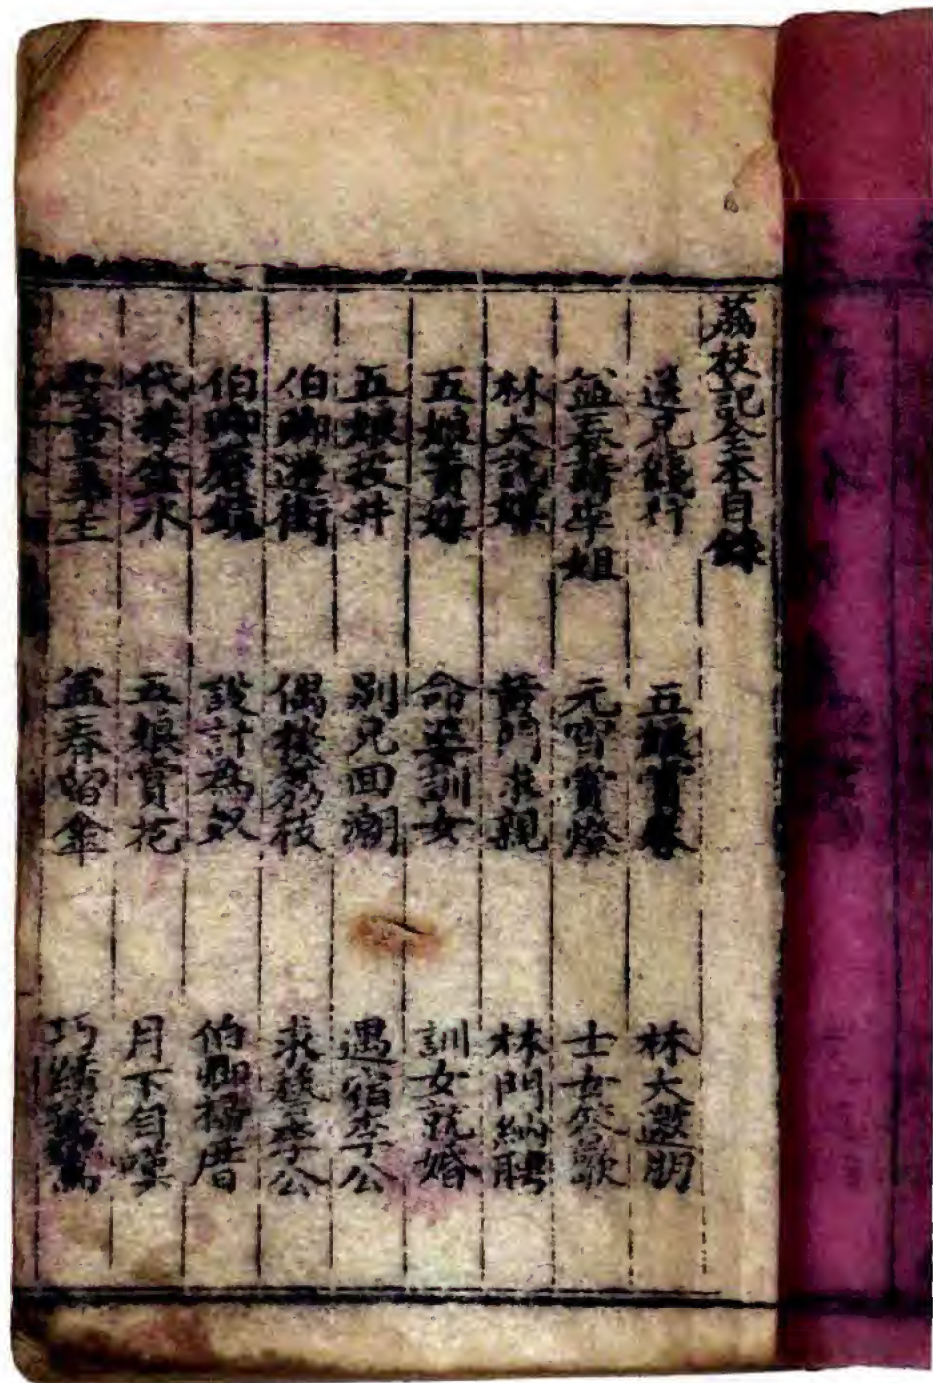 荔枝記全本目錄
送兄餞行 五娘賞春 林大邀朋
益春請李姐 元宵賞燈 士女答歌
林大託媒 黃門求親 林門納聘
五娘責媒 命婆訓女 訓女就婚
五娘投井 別兄囬潮 遇宿李公
伯卿遊街 偶棲荔枝 求藝李公
伯卿磨鏡 設計為奴 伯卿掃厝
代捧盆水 五娘賞花 月下自嘆
益春留傘 巧繡